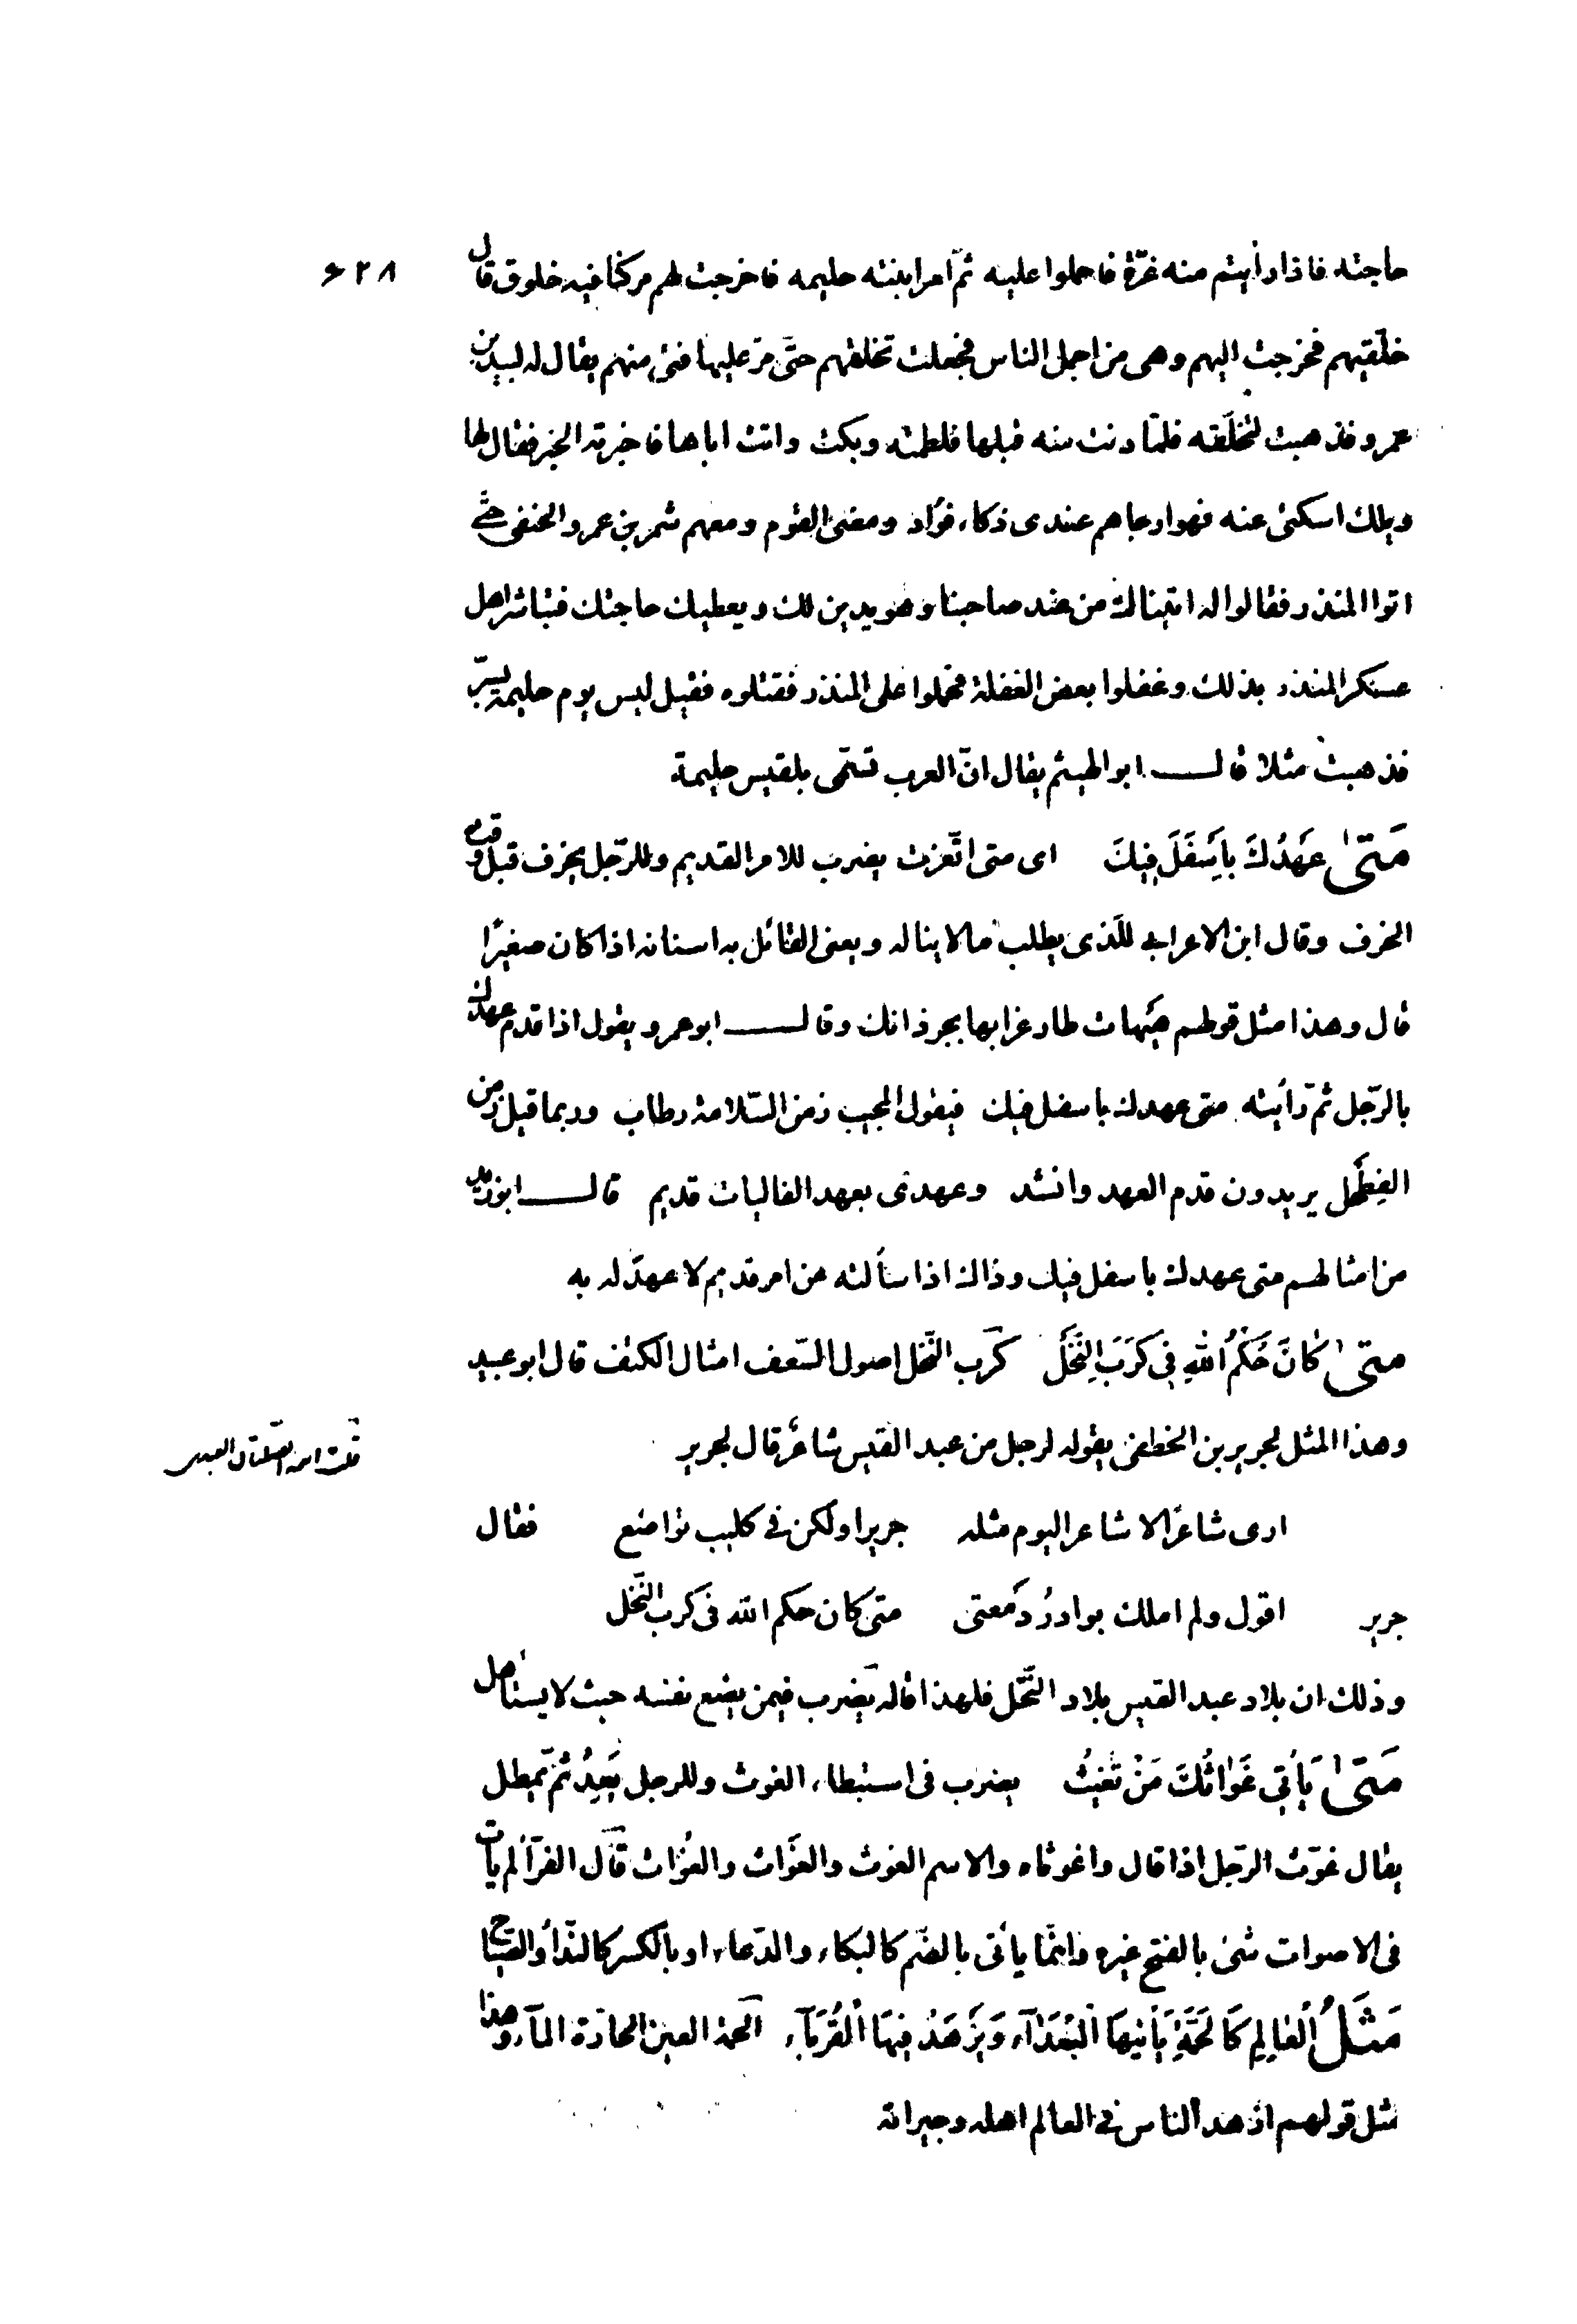 ۶۲۸
حاجته فاذا رأيتم منه غرّة فاحملوا عليه ثمّ امر ابنته حليمه فاخرجت لهم مركنًا فيه خلوق قال
خلّقيهم فخرجت اليهم وهى من اجمل الناس فجعلت تخلقهم حتّى مرّ عليها فتى منهم يقال له لبيد بن
عمرو فذهبت لتخلّقه فلمّا دنت منه قبلها فلطمته وبكت واتت اباها فاخبرته الخبر فقال لها
ويلك اسكتى عنه فهو ارجاهم عندى ذكاء فؤاد ومضى القوم ومعهم شمر بن عمرو الحنفى حتّى
اتوا المنذر فقالوا له اتيناك من عند صاحبنا وهو يدين لك ويعطيك حاجتك فتباشر اهل
عسكر المنذر بذلك وغفلوا بعض الغفلة فحملوا على المنذر فقتلوه فقيل ليس يوم حليمة بسرّ
فذهبت مثلا قال ابو الهيثم يقال انّ العرب تسمّى بلقيس حليمة
مَتىٰ عَهْدُكَ بِأَسْفَلَ فِيكَ اى متى اتّغزت يضرب للامر القديم وللرّجل يخرف قبل وقت
الخرف وقال ابن الاعرابى للّذى يطلب مالا يناله ويعنى القائل به اسنانه اذا كان صغيرًا
قال وهذا مثل قولهم هَيْهات طار غرابها بجرذانك وقال ابو عمرو يقول اذا قدم عهدك
بالرّجل ثمّ رأيته متى عهدك باسفل فيك فيقول المجيب زمن السّلامة رطاب وربما قيل زمن
الفِطَحْل يريدون قدم العهد وانشد وعهدى بعهد الغاليات قديم قال ابو زيد
من امثالهم متى عهدك باسفل فيك وذاك اذا سألته عن امر قديم لا عهد له به
مَتىٰ كانَ حُكْمُ اللهِ فِى كَرَبِ النَّخْلِ كرب النّخل اصول السّعف امثال الكتف قال ابو عبيد
وهذا المثل لجرير بن الخطفى يقوله لرجل من عبد القيس شاعرٌ قال لجرير
قلت اسمه الصّلتان العبدى
ارى شاعرًا لا شاعر اليوم مثله جريرا ولكن فى كليب تواضع فقال
جرير اقول ولم املك بوادرُ دَمعتى متى كان حكم الله فى كرب النّخل
وذلك ان بلاد عبد القيس بلاد النّخل فلهذا قاله يضرب فيمن يضع نفسه حيث لا يستأهل
مَتىٰ يَأْتِى غَوٰاثُكَ مَنْ تُغيثُ يضرب فى استبطاء الغوث وللرجل يَعِدُ ثمّ يمطل
يقال غوّث الرّجل اذا قال واغوثاه والاسم الغوث والغَواث والغُواث قال الفرّآء لم يأت
فى الاصوات شئ بالفتح غيره وانّما يأتى بالضّم كالبكاء والدّعاء او بالكسر كالنّداء والصّياح
مَثَلُ الْعٰالِمِ كَالْحَمَّةِ يَأْتيهَا الْبُعَدٰآءُ وَيَزْهَدُ فيهَا الْقُرَبٰآءُ الحمة العين الحارّة المآء وهذا
مثل قولهم ازهد الناس فى العالم اهله وجيرانه